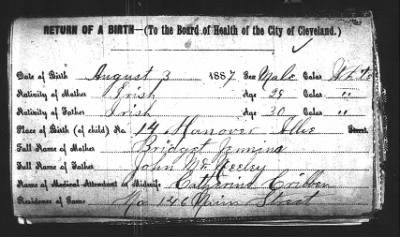 RETURN OF A BIRTH—(To the Board of Health of the City of Cleveland.)
Date of Birth August 3 1887 Sex Male Color White
Nativity of Mother Irish Age 28 Color "
Nativity of Father Irish Age 30 Color "
Place of Birth (of child) No 14 Hanover Street.
Full Name of Mother Bridget
Full Name of Father John Mc
Name of Medical Attendant or Midwife Catherine Cribben
Residence of Same No 146 Street